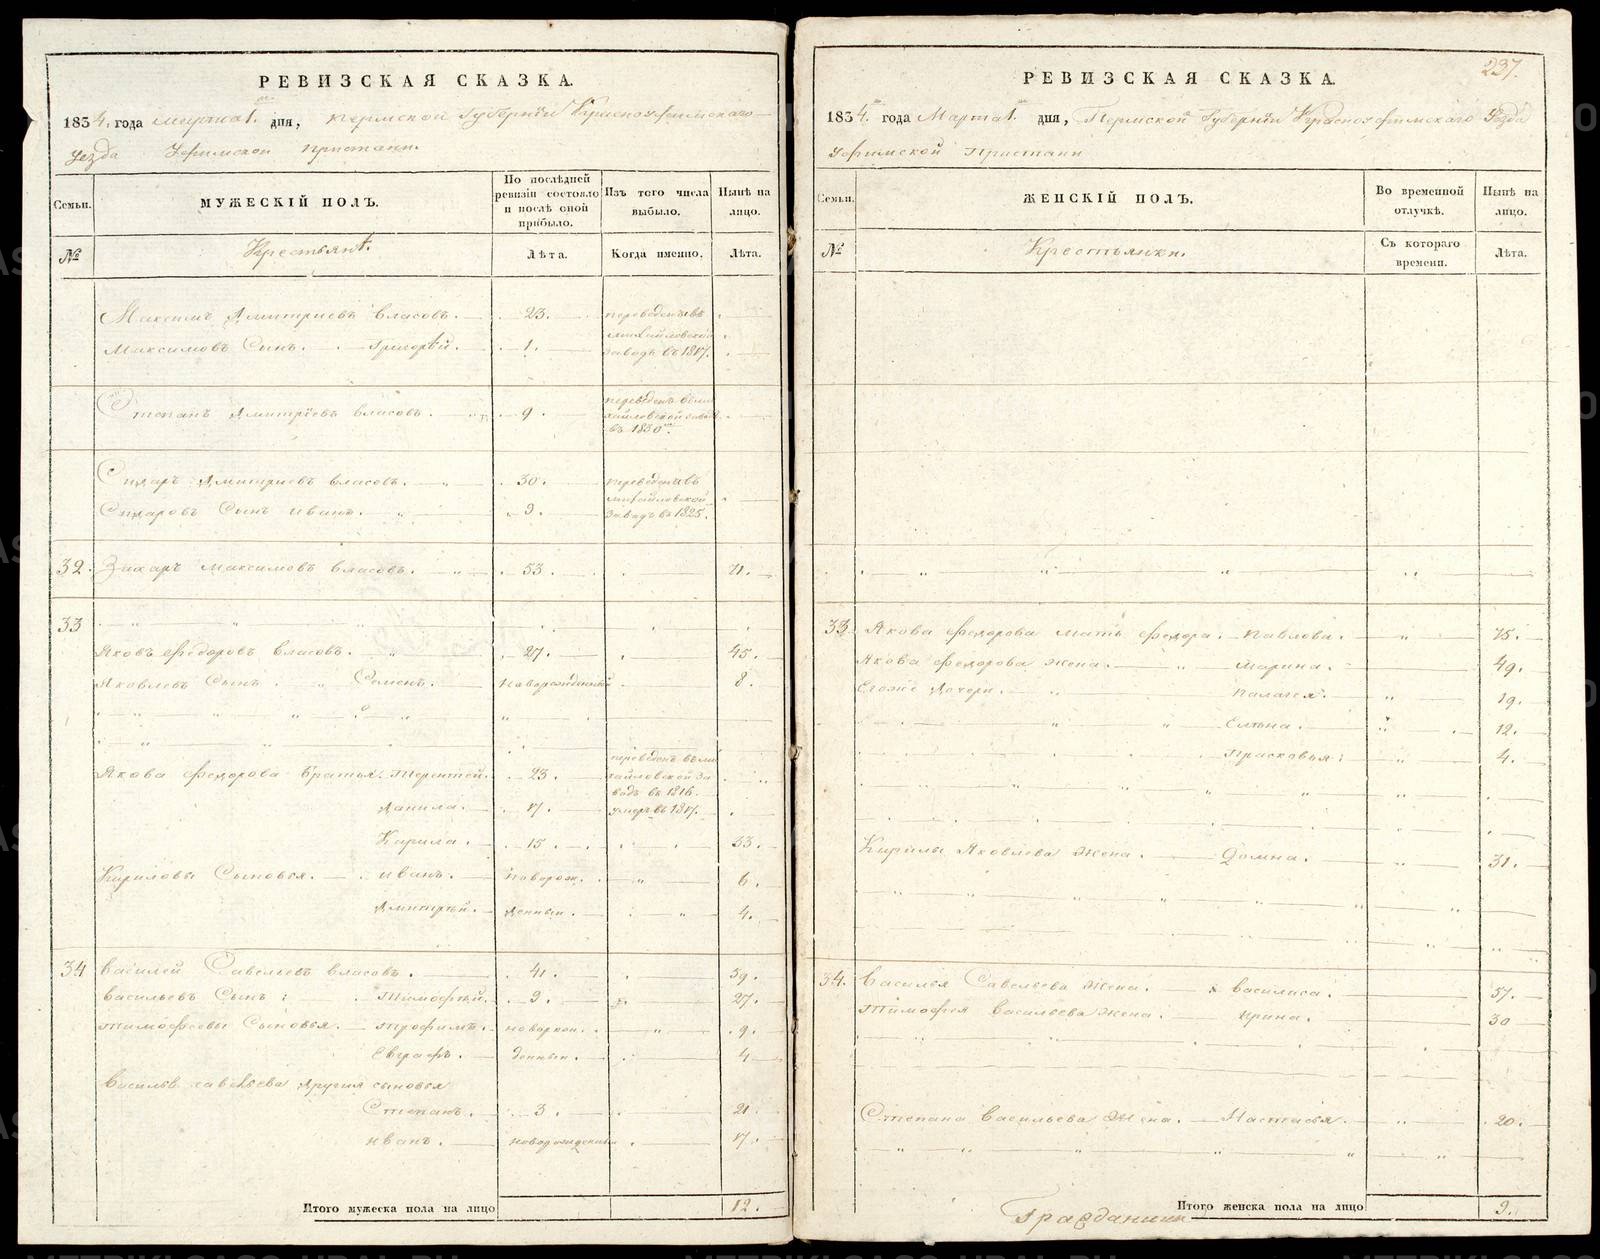 РЕВИЗСКАЯ СКАЗКА.
1834. года марта 1. дня, Пермской Губернїи Красноуфимскаго
уезда Уфимской пристани.
Семьи. МУЖЕСКІЙ ПОЛЪ. По послѣдней ревизіи состояло и послѣ оной прибыло. Изъ того числа выбыло. Нынѣ на лицо.
№ Крестьянѣ. Лѣта. Когда именно. Лѣта.
Максимъ Дмитриевъ Власовъ. 23. переведены въ
Максимовъ Сынъ. Григорѣй. 1. михайловской заводъ въ 1817.
Степанъ Дмитрїевъ Власовъ. 9. переведенъ в ми
хайловской заводъ
въ 1830.
Сидаръ Дмитриевъ Власовъ. 30. переведены въ
Сидаровъ Сынъ Иванъ. 9. михайловской заводъ в 1825.
32. Захаръ Максимовъ Власовъ. 53. 71.
33
Яковъ Федоровъ Власовъ. 27. 45.
Яковлевъ Сынъ. Семенъ. новорожденный 8.
Якова Федорова Братья. Терентей. 23. переведенъ в ми
хайловской за
водъ въ 1816.
Данила. 17. умеръ въ 1817.
Кирила. 15. 33.
Кириловы Сыновья. Иванъ. новорож. 6.
Дмитрѣй. денныи. 4.
34 Василей Савельевъ Власовъ. 41. 59.
Васильевъ Сынъ: Тимофѣй. 9. 27.
Тимофеевы Сыновья. Трофимъ. новорож. 9.
Евграфъ. денныи. 4
Василья савельева другия сыновья
Степанъ. 3. 21.
Иванъ. новорожденныи 17.
Итого мужеска пола на лицо 12.
237.
РЕВИЗСКАЯ СКАЗКА.
1834. года Марта 1. дня, Пермской Губернїи Красноуфимскаго Уезда
Уфимской Пристани
Семьи. ЖЕНСКІЙ ПОЛЪ. Во временной отлучкѣ. Нынѣ на лицо.
№ Крестьянки. Съ котораго времени. Лѣта.
33. Якова Федорова мать Федора. Павлова. 75.
Якова Федорова жена. Марина. 49.
Егоже Дочери. Палагея. 19.
Елѣна. 12.
Прасковья. 4.
Кирилы Яковлева Жена. Домна. 31.
34. Василья Савельева Жена. Василиса. 57.
Тимофея Васильева Жена. Ирина. 30
Степана Васильева Жена. Настасья. 20.
Итого женска пола на лицо 9.
Гражданинъ